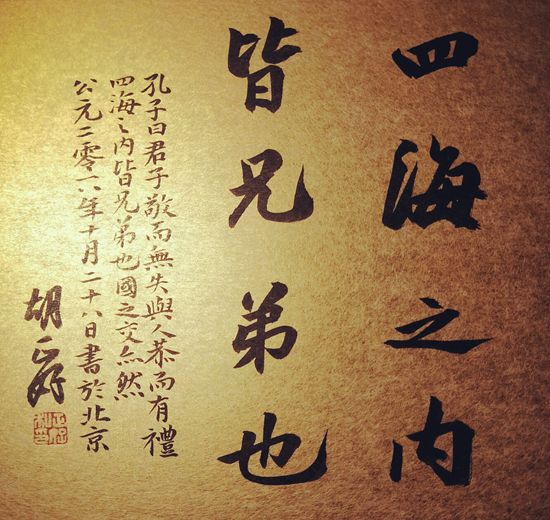 四海之内
皆兄弟也
孔子曰君子敬而無失與人恭而有禮
四海之内皆兄弟也國之交亦然
公元二零一八年十月二十八日書於北京
胡正好